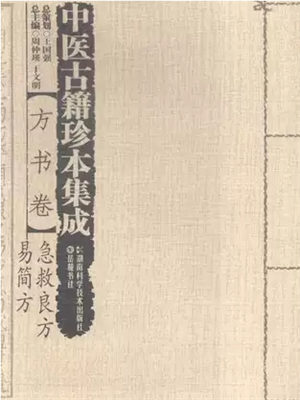 总策划◎王国强
总主编◎周仲瑛 于文明
中医古籍珍本集成
【方书卷】
急救良方
易简方
湖南科学技术出版社
岳麓书社